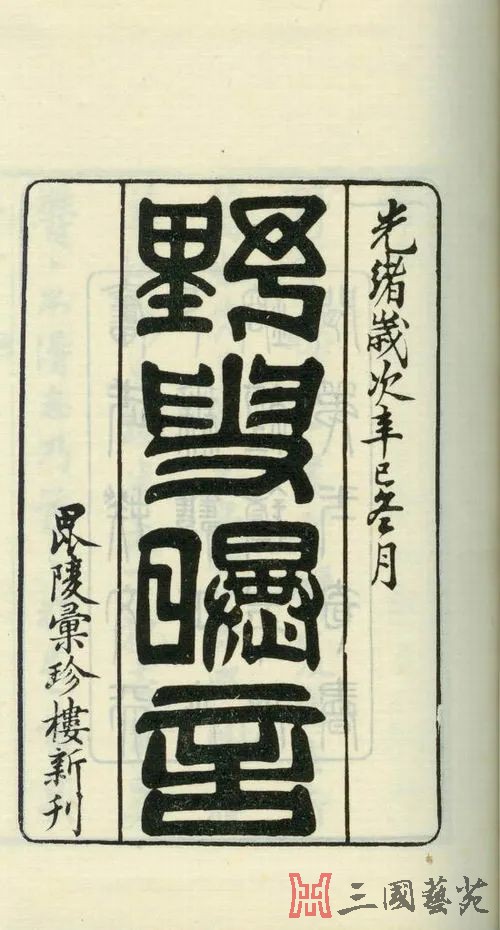 光緒歲次辛巳冬月
野叟曝言
毘陵彙珍樓新刊
三國藝苑